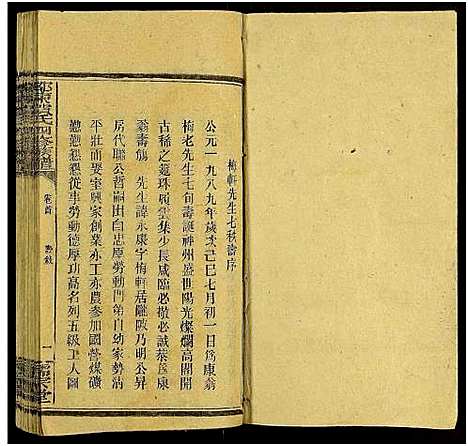 梅軒先生七秩壽序
公元一九八九年歲次己巳七月初一日爲康翁
梅老先生七旬壽誕神州盛世陽光燦爛高閣開
古稀之筵珠履雲集少長咸臨必敬必誠恭進康
翁壽觴 先生諱永康字梅軒居隴陂乃明公昇
房代聯公哲嗣田白忠厚勞動門第自幼家勢消
平壯而娶室興家創業亦工亦農參加國營煤礦
懃懃懇懇從事勞動德厚功高名列五級工人圖
卷首
壽敘
一